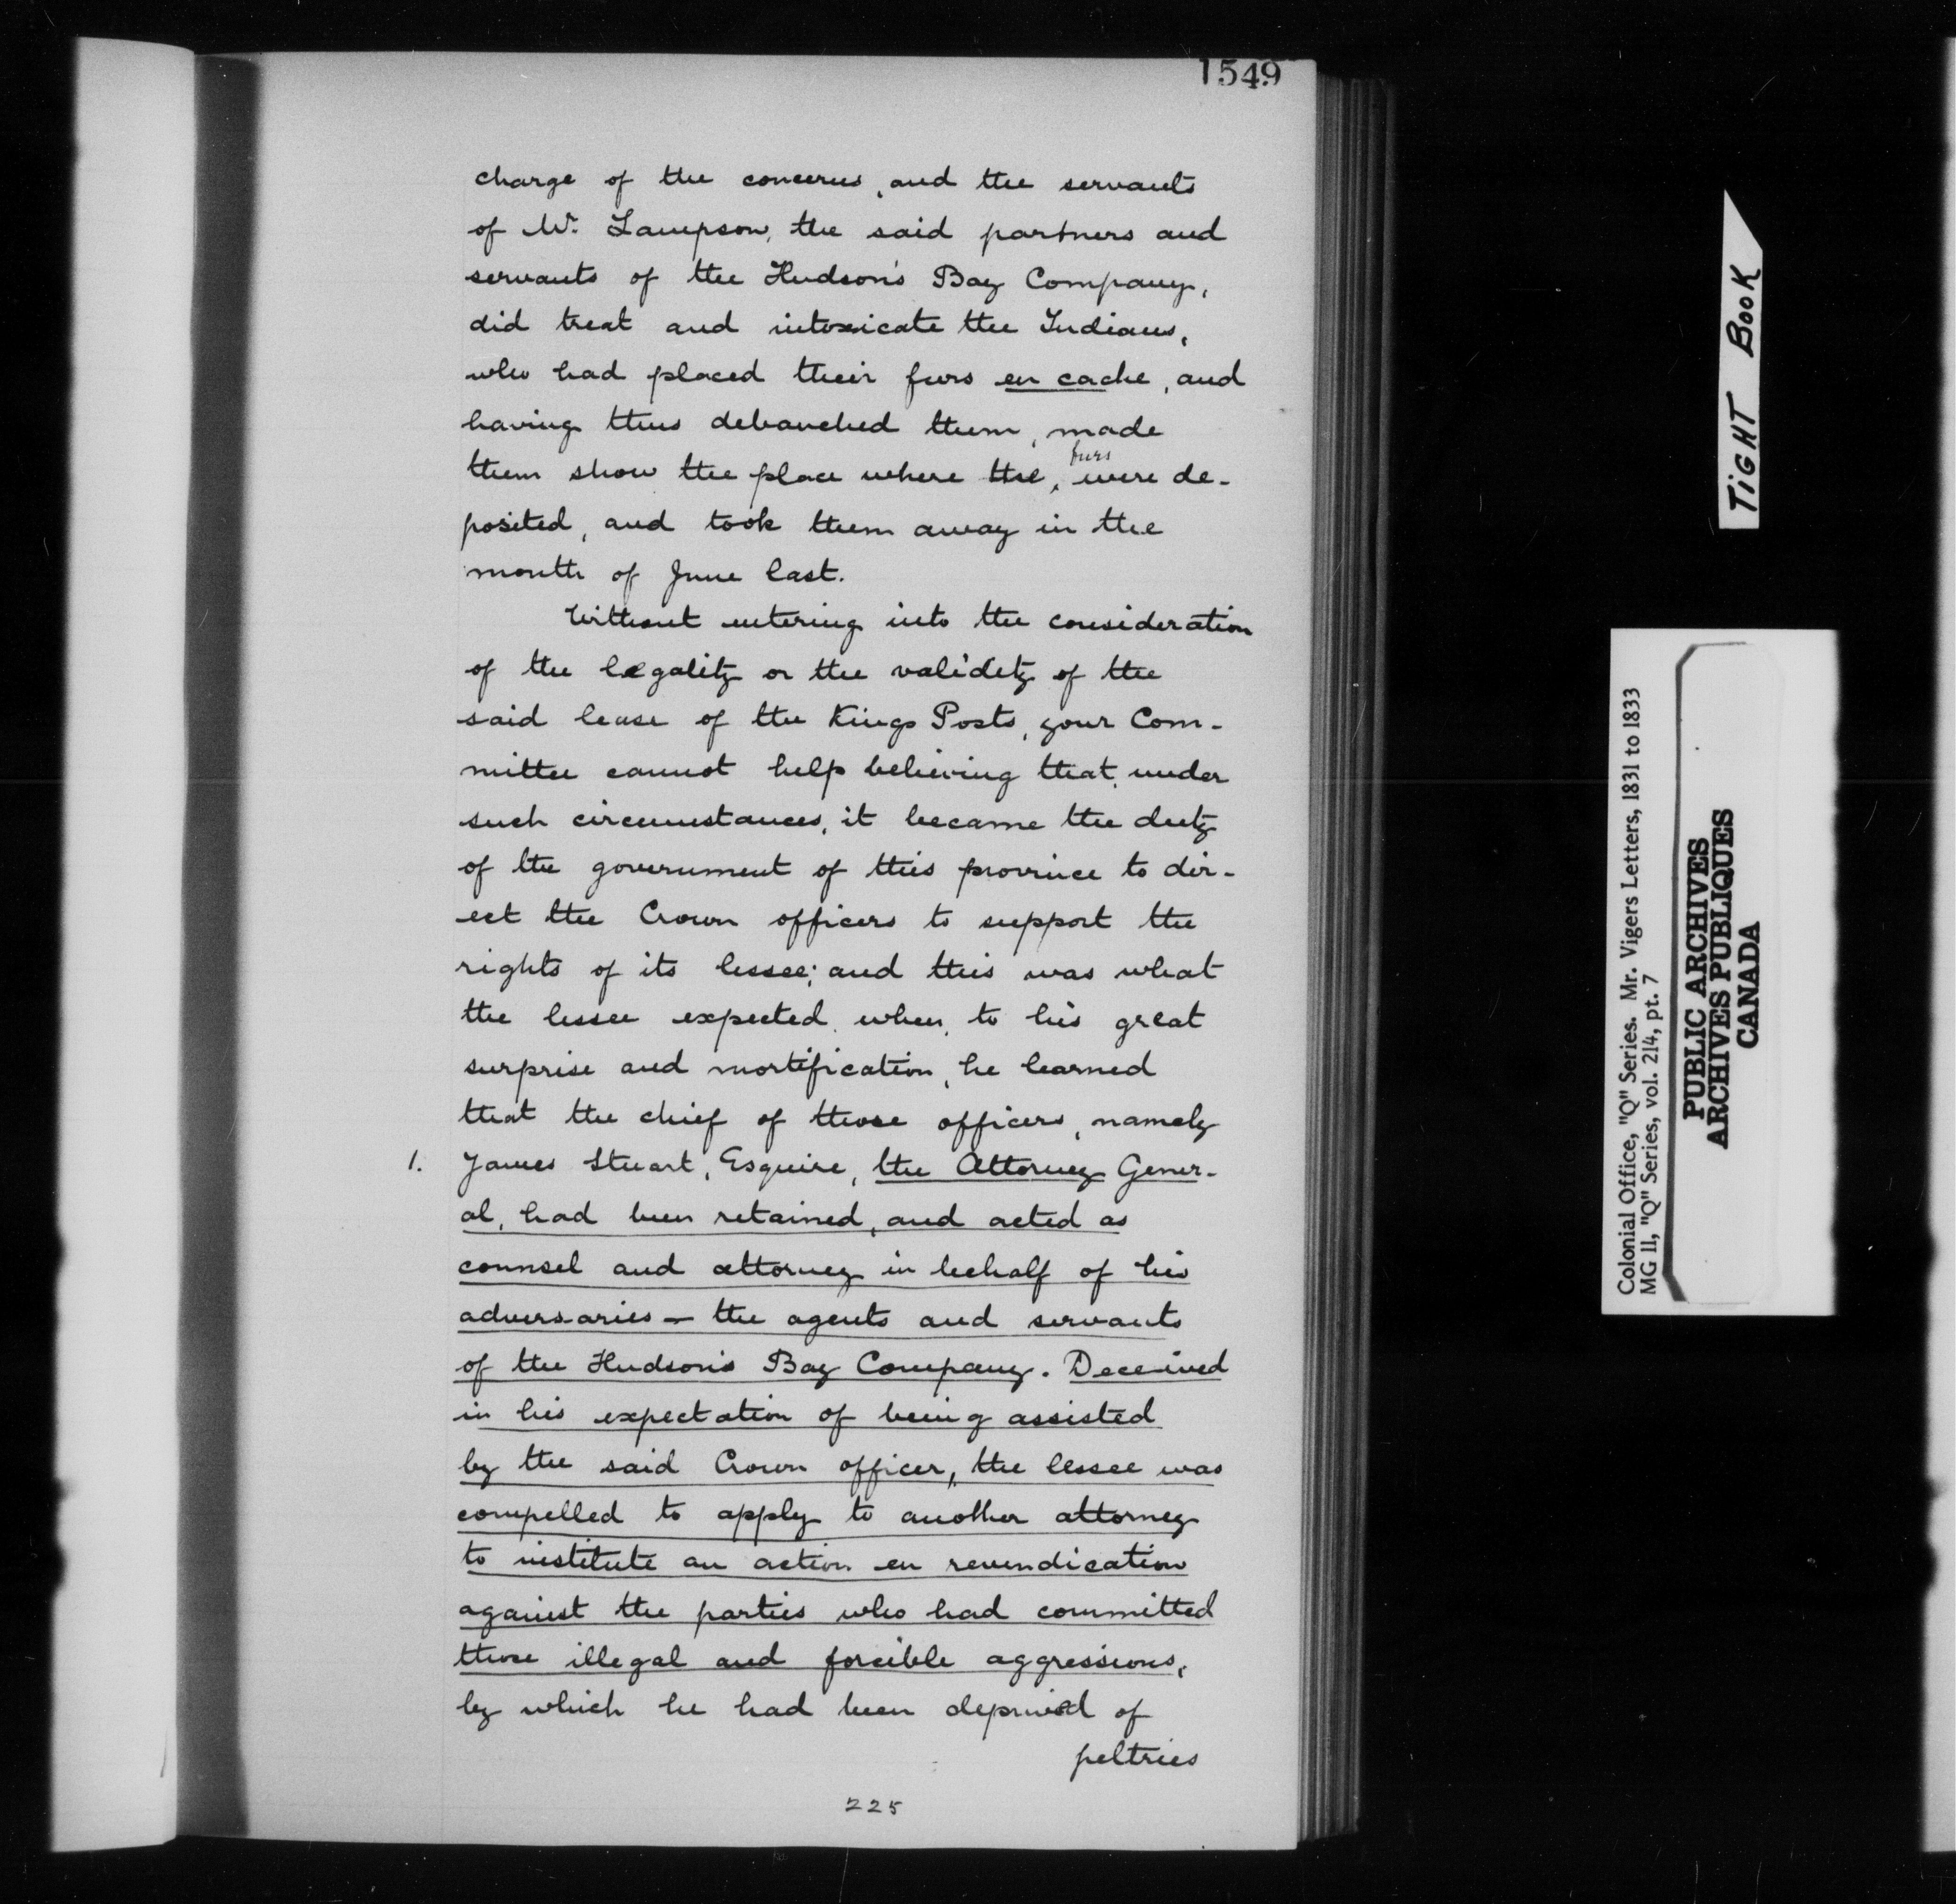 1549
charge of the concerns, and the servants
of Mr. Lampson, the said partners and
servants of the Hudson's Bay Company,
did treat and intoxicate the Indians,
who had placed their furs en cache, and
having thus debauched them, made
them show the place where the furs were de-
posited, and took them away in the
month of June last.
Without entering into the consideration
of the legality or the validity of the
said lease of the Kings Posts, your Com-
mittee cannot help believing that, under
such circumstances, it became the duty
of the government of this province to dir-
ect the Crown officers to support the
rights of its lessee; and this was what
the lessee expected, when, to his great
surprise and mortification, he learned
that the chief of those officers, namely
1. James Stuart, Esquire, the Attorney Gener-
al, had been retained, and acted as
counsel and attorney in behalf of his
adversaries — the agents and servants
of the Hudson's Bay Company. Deceived
in his expectation of being assisted
by the said Crown officer, the lessee was
compelled to apply to another attorney
to institute an action en revendication
against the parties who had committed
those illegal and forcible aggressions,
by which he had been deprived of
peltries
225
TIGHT BOOK
Colonial Office, "Q" Series. Mr. Vigers Letters, 1831 to 1833
MG 11, "Q" Series, vol. 214, pt. 7
PUBLIC ARCHIVES
ARCHIVES PUBLIQUES
CANADA